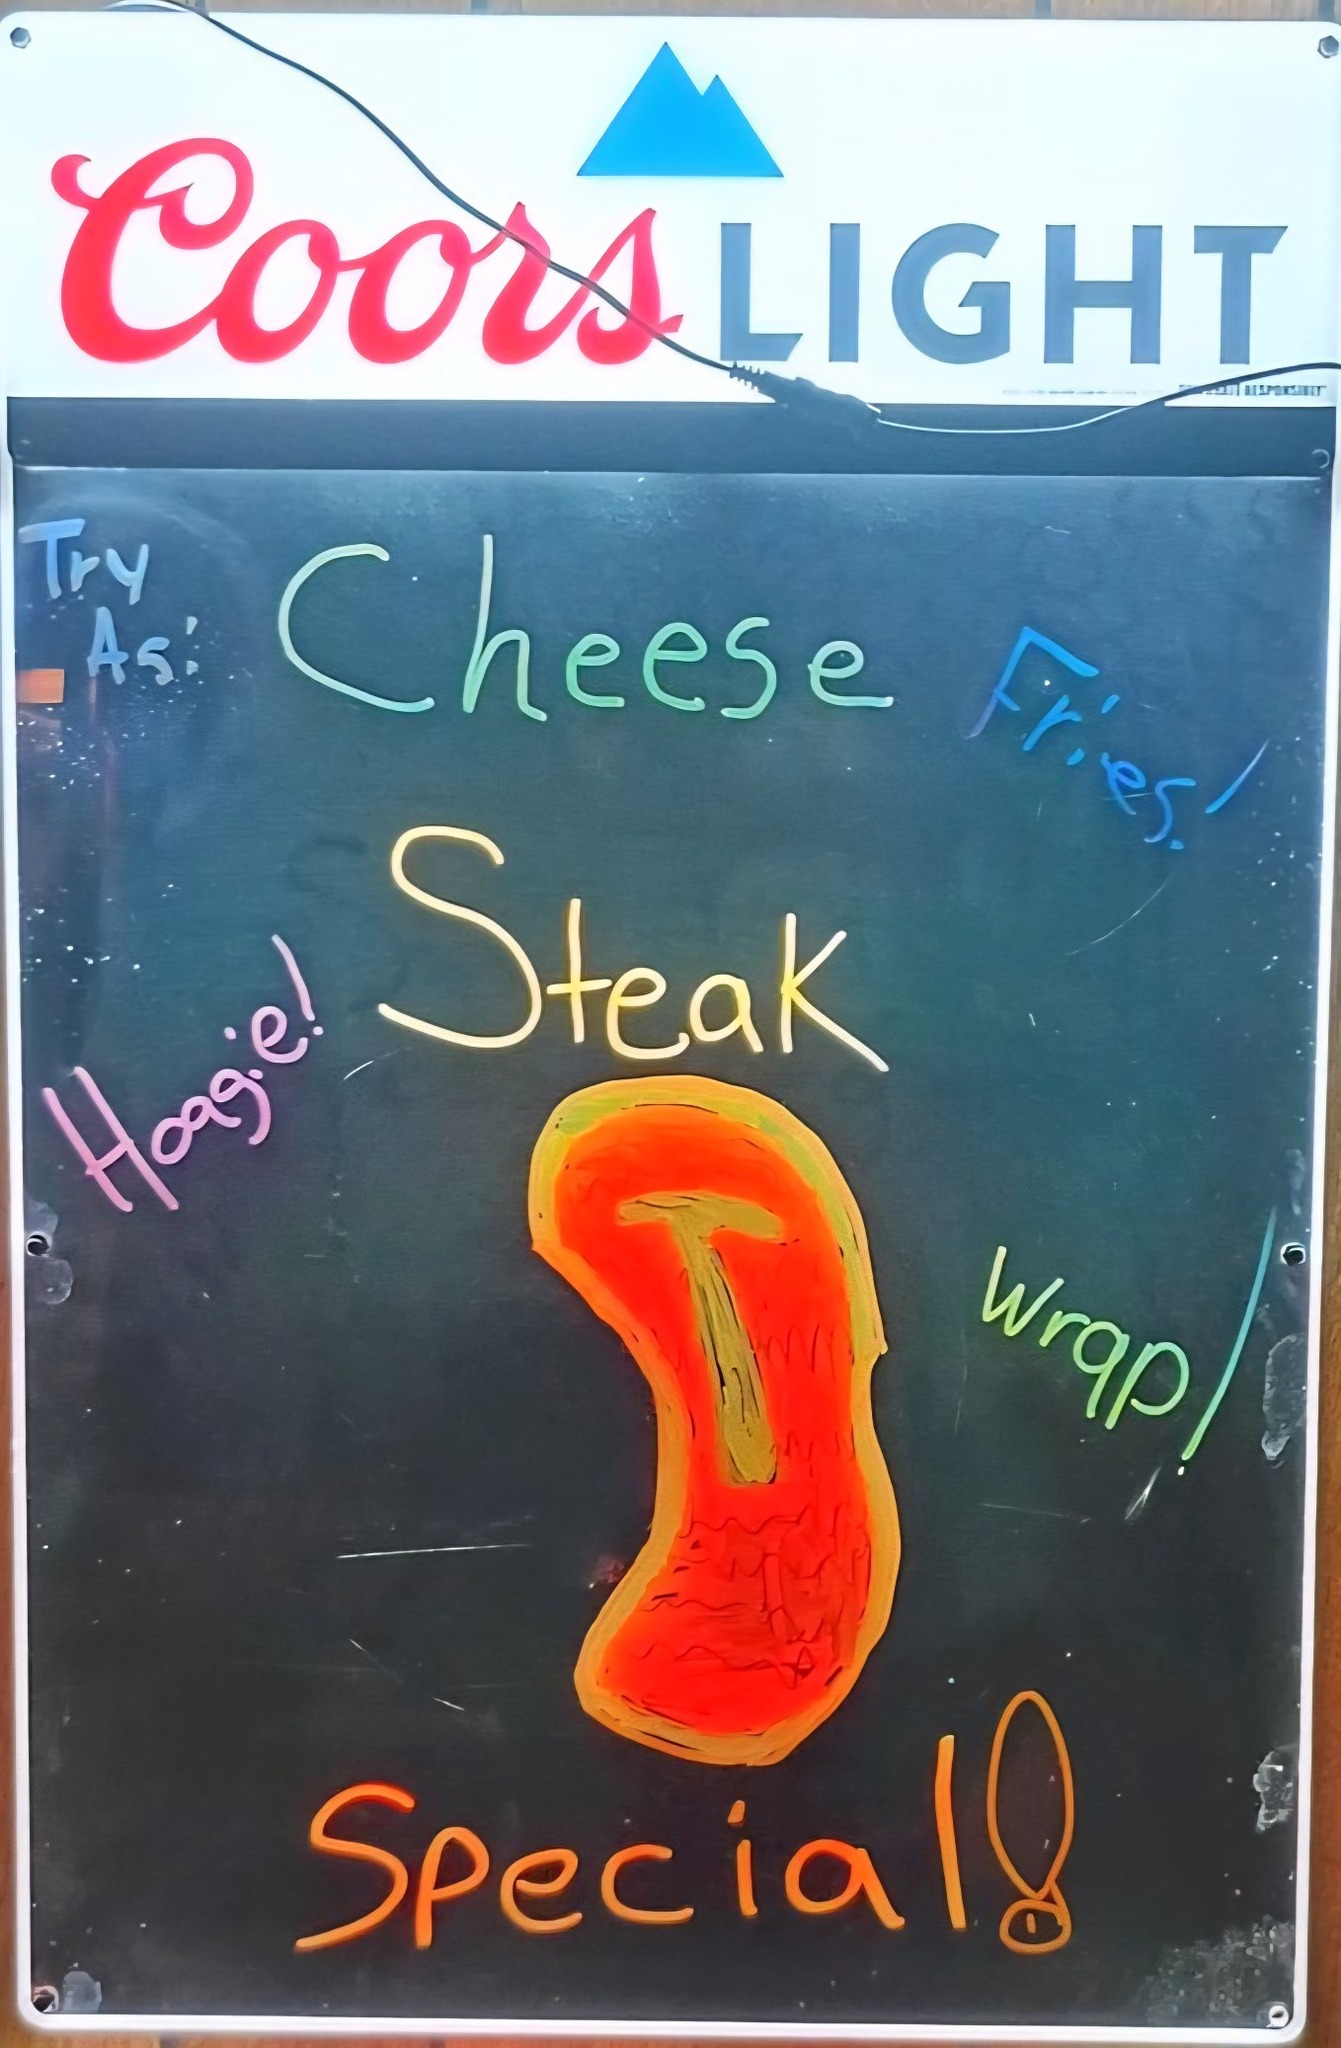 Coors LIGHT
Try
As:
Cheese
Fries!
Steak
Hoagie!
Wrap!
Special!